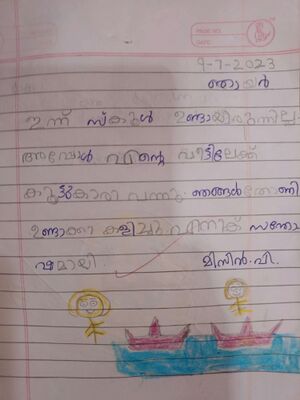 9-7-2023
ഞായർ
ഇന്ന് സ്കൂൾ ഉണ്ടായിരുന്നില്ല
അപ്പോൾ എന്റെ വീട്ടിലേക്ക്
കൂട്ടുകാരി വന്നു. ഞങ്ങൾ തോണി
ഉണ്ടാക്കി കളിച്ചു എനിക് സന്തോ
ഷമായി. മിസിൻ.പി.